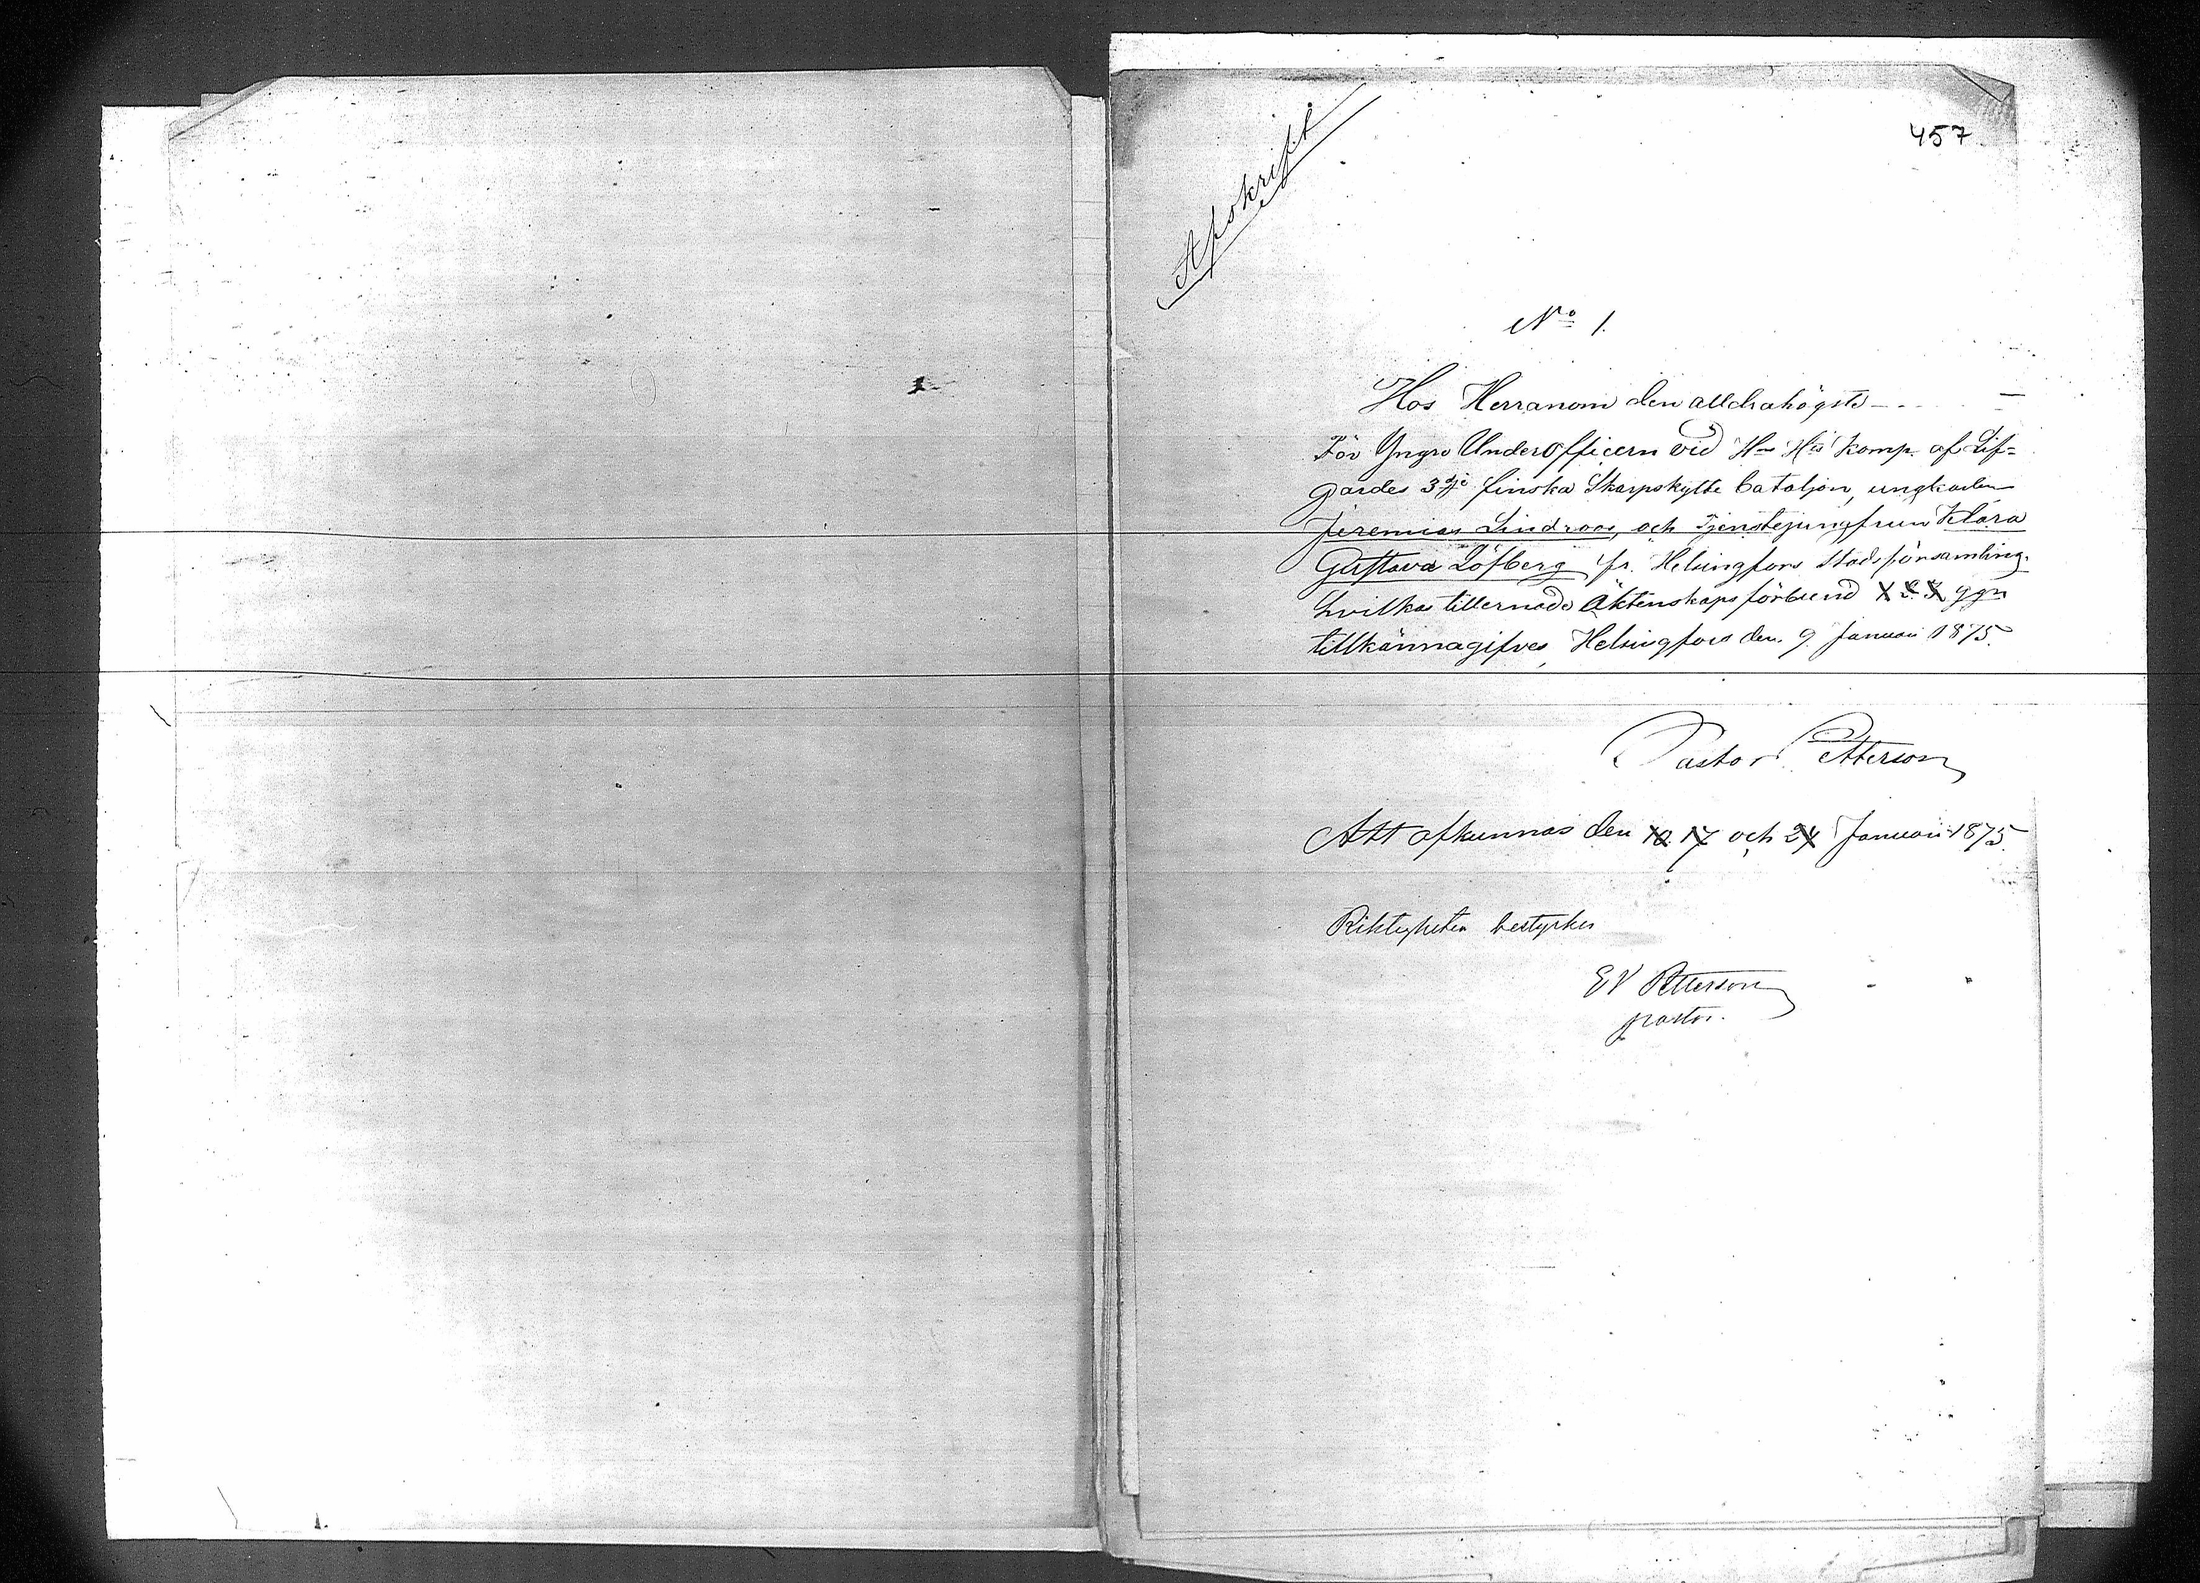 457
Afskrift
No 1.
Hos Herranom den alldrahögste
För Yngre Underofficern vid Hns Hts komp. af Lif-
gardes 3dje finska Skarpskytte bataljon, ungkarlen
Jeremias Lindroos, och Tjenstejungfrun Klara
Gustava Löfberg fr. Helsingfors Stadsförsamling,
hvilkas tillernade Äktenskapsförbund 1 2 3 ggn
tillkännagifves, Helsingfors den 9 Januari 1875.
Pastor Petterson
Att afkunnas den 10. 17 och 24 Januari 1875.
Riktigheten bestyrker
EV Petterson
pastor.